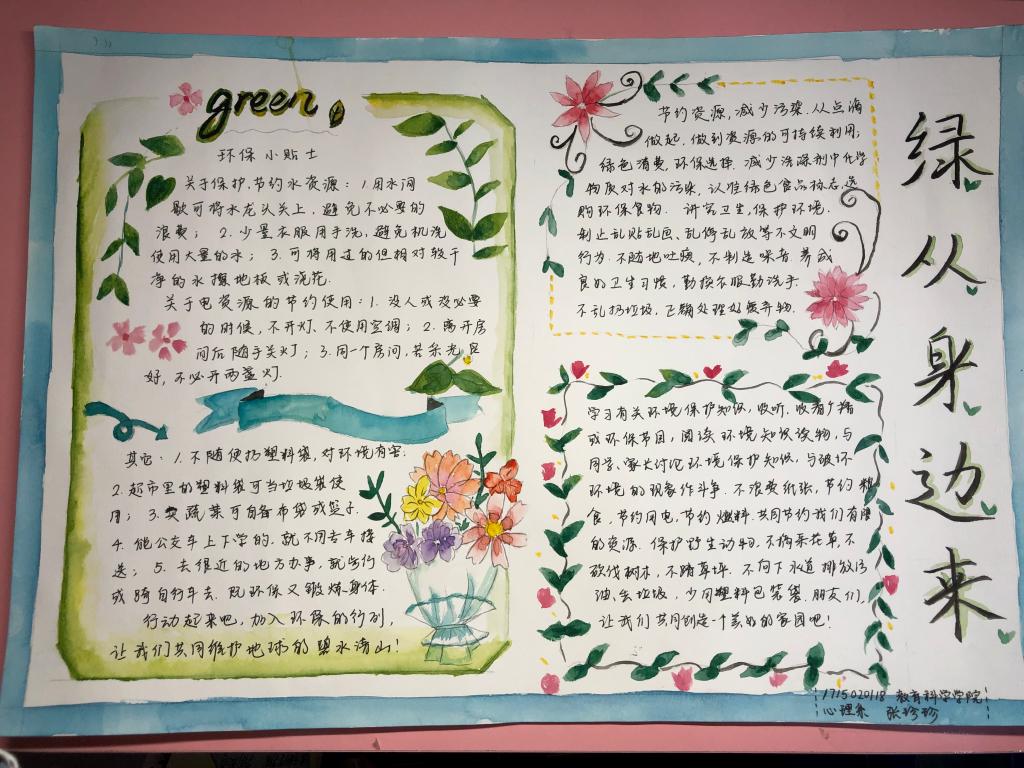 green
环保小贴士
关于保护、节约水资源：1.用水间
歇可将水龙头关上，避免不必要的
浪费；2.少量衣服用手洗，避免机洗
使用大量的水；3.可将用过的但相对较干
净的水擦地板或浇花.
关于电资源的节约使用：1.没人或没必要
的时候，不开灯.不使用空调；2.离开房
间后随手关灯；3.同一个房间，若采光良
好，不必开两盏灯.
其它：1.不随便扔塑料袋，对环境有害.
2.超市里的塑料袋可当垃圾袋使
用；3.买蔬菜可自备布袋或篮子.
4.能公交车上下学的，就不用专车接
送；5.去很近的地方办事，就步行
或骑自行车去.既环保又锻炼身体.
行动起来吧，加入环保的行列，
让我们共同维护地球的碧水青山！
节约资源，减少污染.从点滴
做起，做到资源的可持续利用；
绿色消费，环保选择.减少洗涤剂中化学
物质对水的污染，认准绿色食品标志，选
购环保食物.讲究卫生，保护环境.
制止乱贴乱画、乱停乱放等不文明
行为.不随地吐痰，不制造噪音.养成
良好卫生习惯，勤换衣服勤洗手.
不乱扔垃圾，正确处理好废弃物.
学习有关环境保护知识，收听、收看
或环保节目，阅读环境知识读物，与
同学、家长讨论环境保护知识，与破坏
环境的现象作斗争.不浪费纸张，节约粮
食，节约用电，节约燃料.共同节约我们有限
的资源.保护野生动物.不摘采花草，不
砍伐树木，不踏草坪.不向下水道排放污
油、丢垃圾，少用塑料包装袋.朋友们，
让我们共同创造一个美好的家园吧！
绿从身边来
1715020118 教育科学学院
心理系 张珍珍